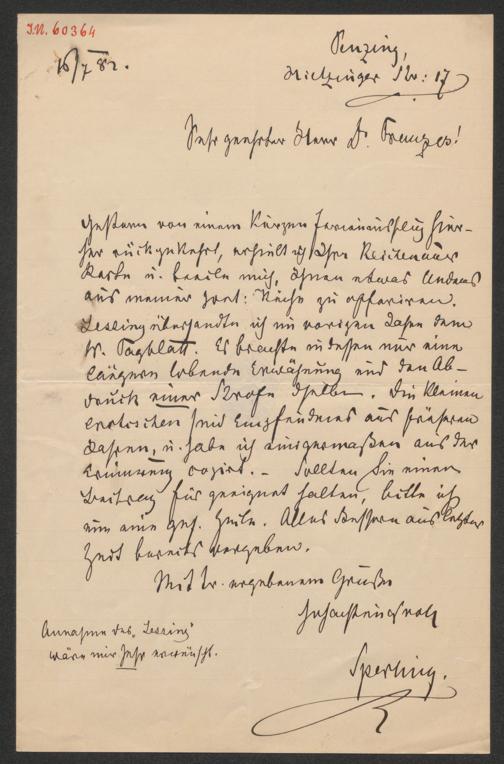 J.N. 60364
16/7 82.
Penzing,
Hietzinger Str: 17
Sehr geehrter Herr Dr. Franzos!
Gestern von einem kurzen Ferienausflug hier-
her rückgekehrt, erhielt ich Ihre Reichenauer
Karte u. beeile mich, Ihnen etwas Anderes
aus meiner poet: Küche zu offeriren.
Lessing übersandte ich im vorigen Jahre dem
W. Tagblatt. Es brachte indessen nur eine
längere lobende Erwähnung und den Ab-
druck einer Strofe dslben. Die kleinen
erotischen sind Empfundenes aus früheren
Jahren, u. habe ich einigermaßen aus der
Erinnerung copirt. – Sollten Sie einen
Beitrag für geeignet halten, bitte ich
um eine gef. Zeile. Alles Bessere aus letzter
Zeit bereits vergeben.
Mit ergebenem Gruße
hochachtungsvoll
Sperling.
Annahme des „Lessing"
wäre mir sehr erwünscht.